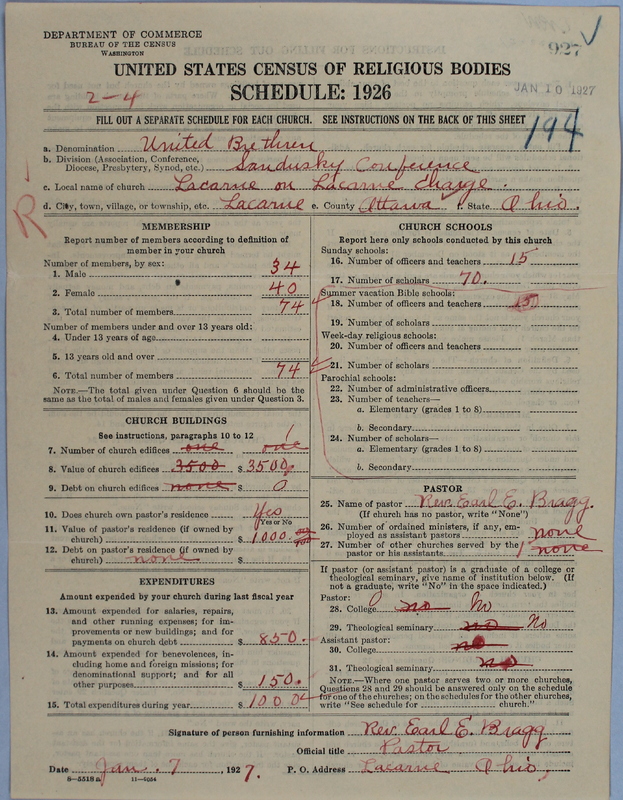 DEPARTMENT OF COMMERCE
BUREAU OF THE CENSUS
WASHINGTON
927
UNITED STATES CENSUS OF RELIGIOUS BODIES
JAN 10 1927
2-4
SCHEDULE: 1926
FILL OUT A SEPARATE SCHEDULE FOR EACH CHURCH. SEE INSTRUCTIONS ON THE BACK OF THIS SHEET
194
a. Denomination United Brethren
b. Division (Association, Conference,
Diocese, Presbytery, Synod, etc.) Sandusky Conference
c. Local name of church Lacarne on Lacarne Charge.
d. City, town, village, or township, etc. Lacarne e. County Ottawa f. State Ohio.
R
MEMBERSHIP
Report number of members according to definition of
member in your church
Number of members, by sex:
1. Male 34
2. Female 40
3. Total number of members 74
Number of members under and over 13 years old:
4. Under 13 years of age
5. 13 years old and over
6. Total number of members 74
NOTE.—The total given under Question 6 should be
same as the total of males and females given under Question 3.
CHURCH BUILDINGS
See instructions, paragraphs 10 to 12
1
7. Number of church edifices one one
8. Value of church edifices 3500 $ 3500
9. Debt on church edifices none $ 0
10. Does church own pastor's residence Yes
(Yes or No)
11. Value of pastor's residence (if owned by
church) $ 1000.
12. Debt on pastor's residence (if owned by
church) none $
EXPENDITURES
Amount expended by your church during last fiscal year
13. Amount expended for salaries, repairs,
and other running expenses; for im-
provements or new buildings; and for
payments on church debt $ 850.
14. Amount expended for benevolences, in-
cluding home and foreign missions; for
denominational support; and for all
other purposes $ 150.
15. Total expenditures during year $ 1000
CHURCH SCHOOLS
Report here only schools conducted by this church
Sunday schools:
16. Number of officers and teachers 15
17. Number of scholars 70.
Summer vacation Bible schools:
18. Number of officers and teachers 15
19. Number of scholars
Week-day religious schools:
20. Number of officers and teachers
21. Number of scholars
Parochial schools:
22. Number of administrative officers
23. Number of teachers—
a. Elementary (grades 1 to 8)
b. Secondary
24. Number of scholars—
a. Elementary (grades 1 to 8)
b. Secondary
PASTOR
25. Name of pastor Rev. Earl E. Bragg.
(If church has no pastor, write "None")
26. Number of ordained ministers, if any, em-
ployed as assistant pastors none
27. Number of other churches served by the
pastor or his assistants 1 none
If pastor (or assistant pastor) is a graduate of a college or
theological seminary, give name of institution below. (If
not a graduate, write "No" in the space indicated.)
Pastor:
28. College no No
29. Theological seminary no No
Assistant pastor:
30. College no
31. Theological seminary no
NOTE.—Where one pastor serves two or more churches,
Questions 28 and 29 should be answered only on the schedule
for one of the churches; on the schedules for the other churches,
write "See schedule for church."
Signature of person furnishing information Rev. Earl E. Bragg
Official title Pastor
Date Jan. 7, 1927. P. O. Address Lacarne Ohio,
8—5518a 11—9054